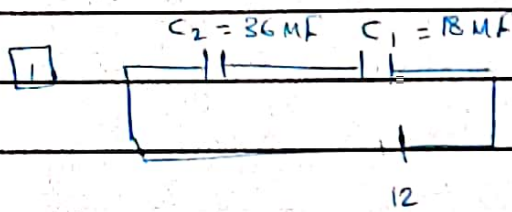 C₂ = 36 MF C₁ = 18 MF
1
12